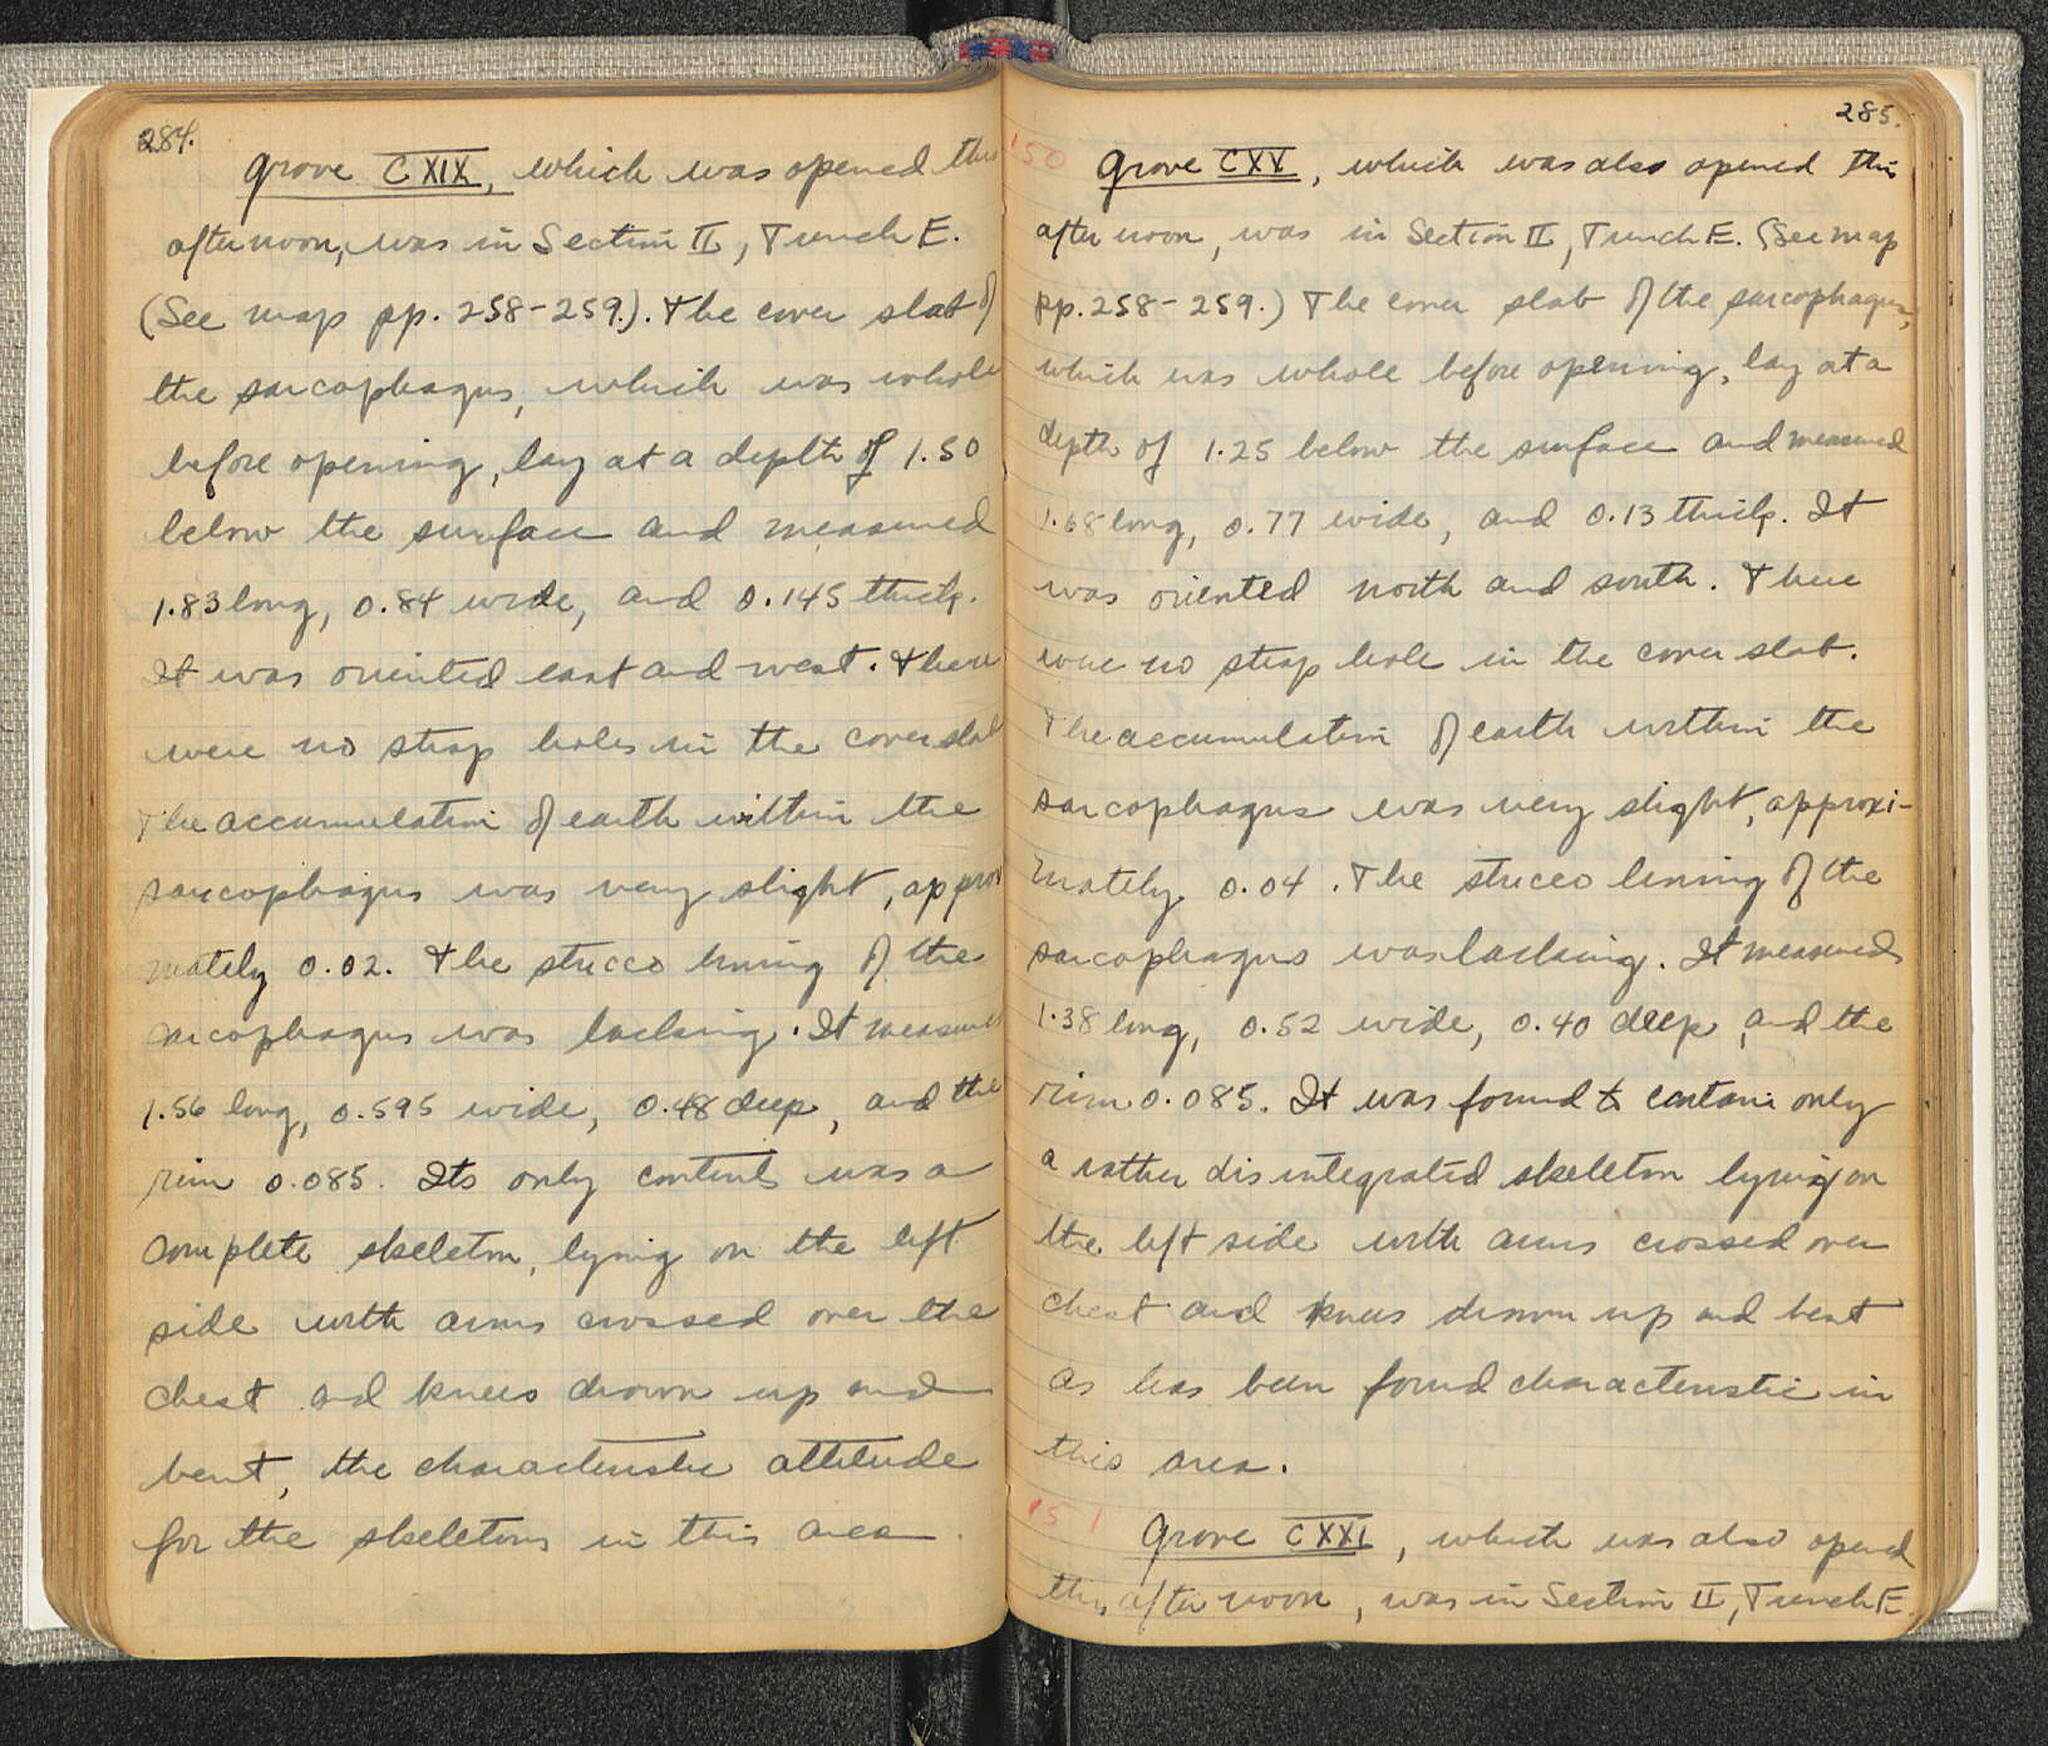 284.
Grave CXIX, which was opened this
afternoon, was in Section II, Trench E.
(See map pp. 258-259.). The cover slab of
the sarcophagus, which was whole
before opening, lay at a depth of 1.50
below the surface and measured
1.83 long, 0.84 wide, and 0.145 thick.
It was oriented east and west. There
were no strap holes in the cover slab
The accumulation of earth within the
sarcophagus was very slight, approxi
mately 0.02. The stucco lining of the
sarcophagus was lacking. It measured
1.56 long, 0.595 wide, 0.48 deep, and the
rim 0.085. Its only contents was a
complete skeleton, lying on the left
side with arms crossed over the
chest and knees drawn up and
bent, the characteristic attitude
for the skeletons in this area.
285.
150 Grave CXX, which was also opened this
afternoon, was in Section II, Trench E. (See map
pp. 258-259.) The cover slab of the sarcophagus,
which was whole before opening, lay at a
depth of 1.25 below the surface and measured
1.68 long, 0.77 wide, and 0.13 thick. It
was oriented north and south. There
were no strap hole in the cover slab.
The accumulation of earth within the
sarcophagus was very slight, approxi-
mately 0.04. The stucco lining of the
sarcophagus was lacking. It measured
1.38 long, 0.52 wide, 0.40 deep, and the
rim 0.085. It was found to contain only
a rather disintegrated skeleton lying on
the left side with arms crossed over
chest and knees drawn up and bent
as has been found characteristic in
this area.
151 Grave CXXI, which was also opened
this afternoon, was in Section II, Trench E.